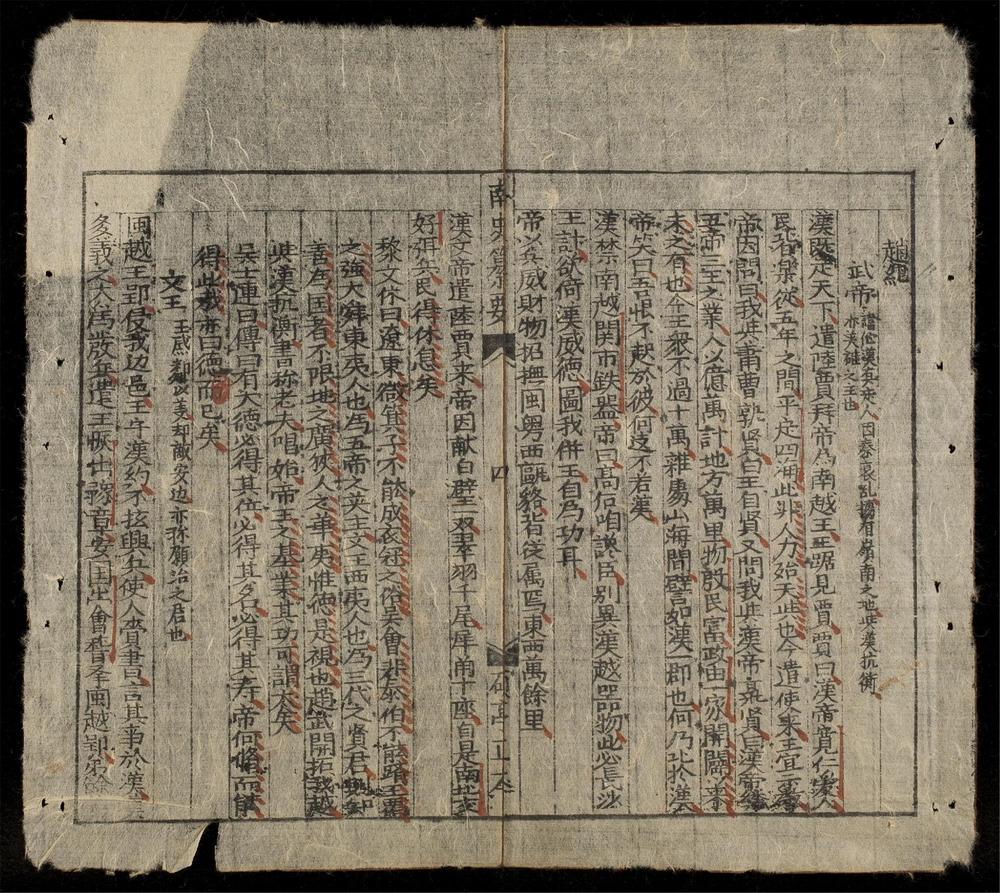 趙紀
武帝 諱佗漢真定人因秦衰乱據有嶺南之地與漢抗衡
亦英雄之主也
漢既定天下遣陸賈拜帝為南越王王踞見賈賈曰漢帝寛仁愛人
民皆樂從五年之間平定四海此非人力殆天此也今遣使来王宜
帝因問曰我與蕭曹孰賢曰王自賢又問我與漢帝孰賢曰漢帝継
五帝三王之業人以億萬計地方萬里物殷民富政由一家開闢以来
未之有也今王衆不過十萬雜處山海間譬如漢一郡也何乃比於漢
帝笑曰吾恨不起於彼何遽不若漢
漢禁南越関市鉄器帝曰髙后听讒臣别異漢越器物此必長沙
王計欲倚漢威德圖我併王自為功耳
帝以兵威財物招撫閩粤西甌駱皆從属焉東西萬餘里
南史纂要 四 碩亭正本
漢文帝遣陸賈来帝因献白璧一双翠羽千尾犀角十座自是南北交
好弭兵民得休息矣
黎文休曰遼東微箕子不能成衣冠之俗吳會非泰伯不能躋王霸
之強大舜東夷人也為五帝之英主文王西夷人也為三代之賢君
善為国者不限地之廣狹人之華夷惟德是視也趙武開拓我越
與漢抗衡書称老夫唱始帝王之基業其功可謂大矣
吳士連曰傳曰有大德必得其位必得其名必得其寿帝何脩而能
得此哉亦曰德而已矣
文王
安边亦称願治之君也
閩越王郢侵我边邑王守漢約不抗興兵使人賫書言其事於漢
多義之大為發兵遣王恢出豫章安国出會稽